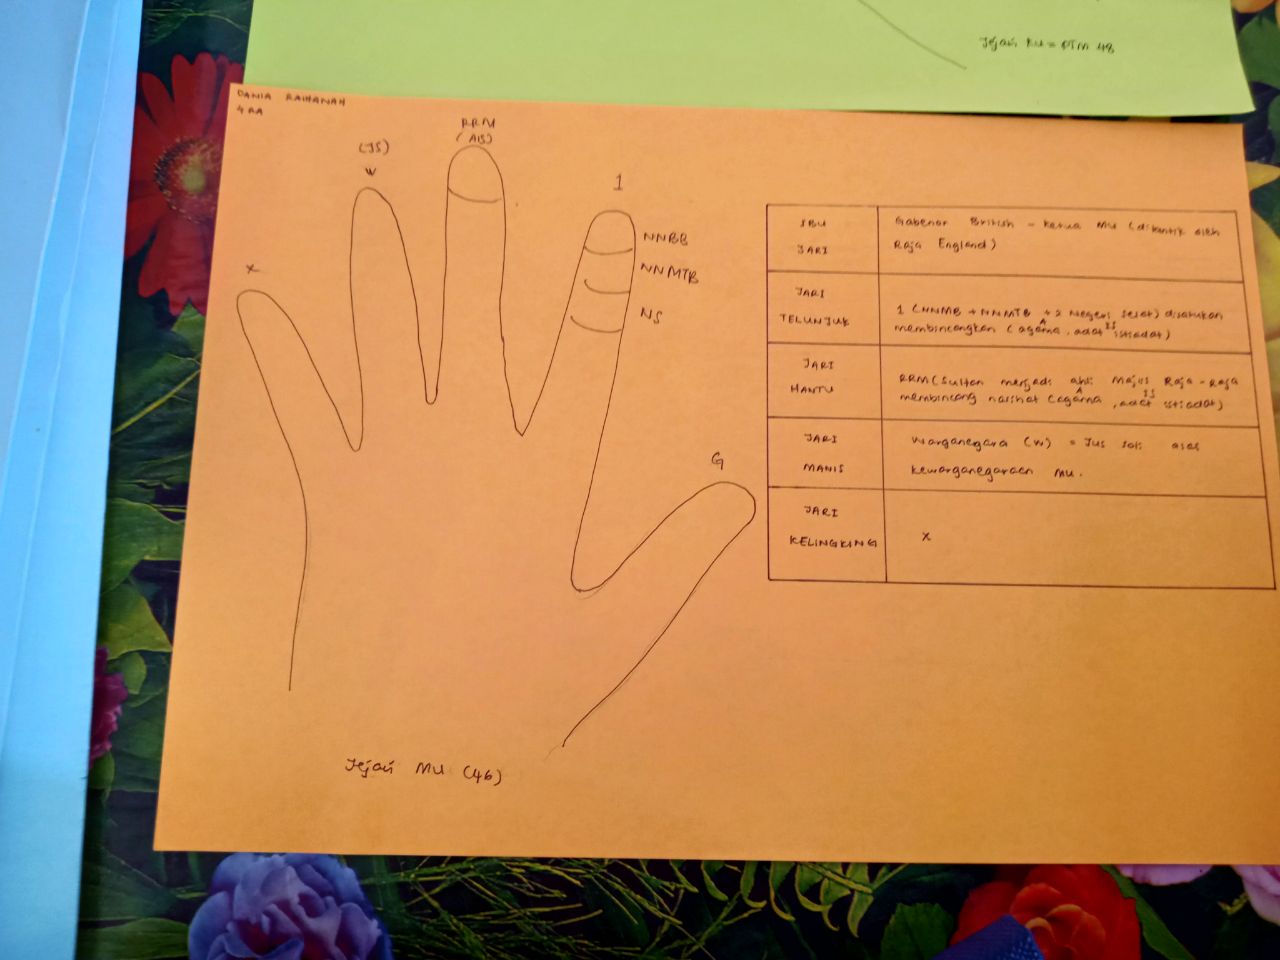 Jejari KU = PTM 48
DANIA RAIHANAH
4 RA
(JS)
W
RRM
(AIS)
1
X
NNBB
NNMTB
NS
G
IBU
JARI
Gabenor British - Ketua MU (dilantik oleh
Raja England)
JARI
TELUNJUK
1 (NNMB + NNMTB + 2 Negeri Selat) disatukan
membincangkan (agama, adat istiadat)
A
IS
JARI
HANTU
RRM (Sultan menjadi ahli Majlis Raja-Raja
membincang nasihat (agama, adat istiadat)
A
IS
JARI
MANIS
Warganegara (W) = Jus Soli asas
kewarganegaraan MU.
JARI
KELINGKING
X
Jejari MU (46)